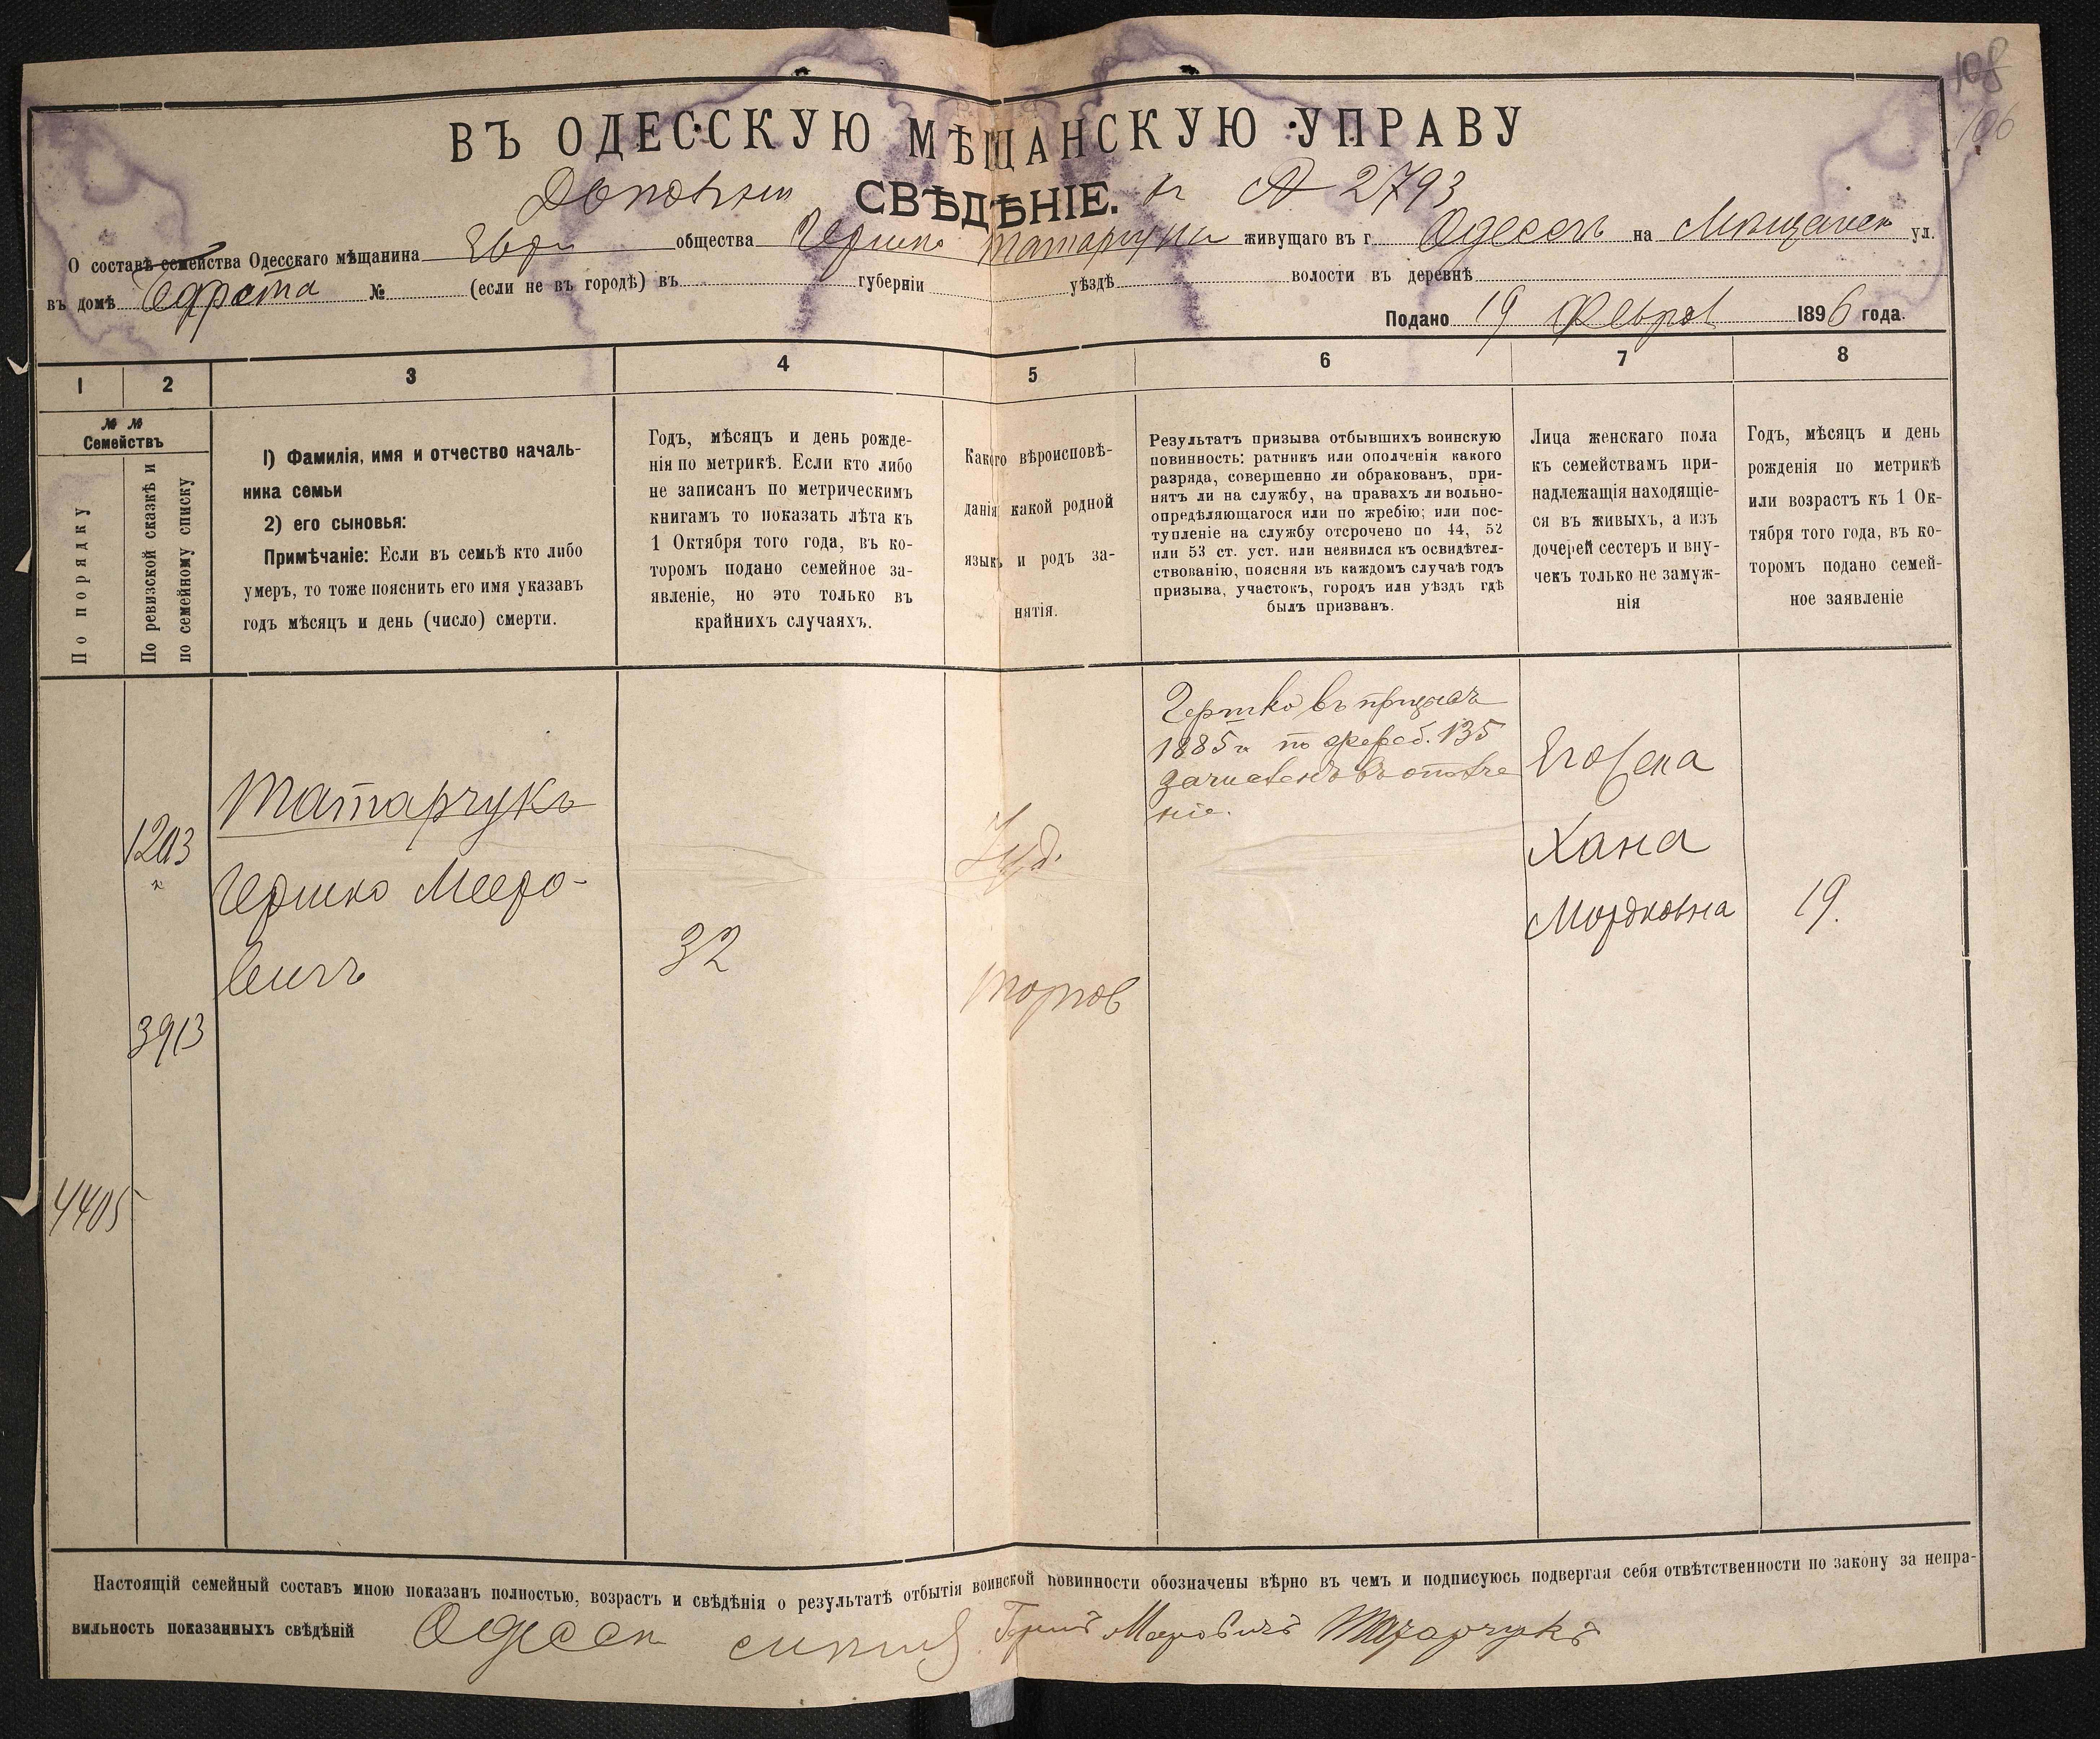 108
106
ВЪ ОДЕССКУЮ МѢЩАНСКУЮ УПРАВУ
СВѢДѢНІЕ. къ № 2793
О составѣ семейства Одесскаго мѣщанина Евр общества Гершко Татарчука живущаго въ г. Одессѣ на Мѣщанск ул.
въ домѣ № (если не въ городѣ) въ губерніи уѣздѣ волости въ деревнѣ
Подано 19 Феврал 1896 года.
1 2 3 4 5 6 7 8
№ №
Семействъ
По порядку
По ревизской сказкѣ и
по семейному списку
1) Фамилія, имя и отчество началь-
ника семьи
2) его сыновья:
Примѣчаніе: Если въ семьѣ кто либо
умеръ, то тоже пояснить его имя указавъ
годъ мѣсяцъ и день (число) смерти.
Годъ, мѣсяцъ и день рожде-
нія по метрикѣ. Если кто либо
не записанъ по метрическимъ
книгамъ то показать лѣта къ
1 Октября того года, въ ко-
торомъ подано семейное за-
явленіе, но это только въ
крайнихъ случаяхъ.
Какого вѣроисповѣ-
данія какой родной
языкъ и родъ за-
нятія.
Результатъ призыва отбывшихъ воинскую
повинность: ратникъ или ополченія какого
разряда, совершенно ли обракованъ, при-
нятъ ли на службу, на правахъ ли вольно-
опредѣляющагося или по жребію; или пос-
тупленіе на службу отсрочено по 44, 52
или 53 ст. уст. или неявился къ освидѣтел-
ствованію, поясняя въ каждомъ случаѣ годъ
призыва, участокъ, городъ или уѣздъ гдѣ
былъ призванъ.
Лица женскаго пола
къ семействамъ при-
надлежащія находящіе-
ся въ живыхъ, а изъ
дочерей сестеръ и вну-
чекъ только не замуж-
нія
Годъ, мѣсяцъ и день
рожденія по метрикѣ
или возрастъ къ 1 Ок-
тября того года, въ ко-
торомъ подано семей-
ное заявленіе
1203
3913
4405
Татарчукъ
Гершко Мееро-
вичъ
32
Іуд.
торгов
Гершко въ призыв
1885 г. по жереб. 135
зачисленъ въ ополче
ніе.
Его жена
Хана
Мордковна
19.
Настоящій семейный составъ мною показанъ полностью, возрастъ и свѣдѣнія о результатѣ отбытія воинской повинности обозначены вѣрно въ чемъ и подписуюсь подвергая себя отвѣтственности по закону за непра-
вильность показанныхъ свѣдѣній Одесск Меровичъ Татарчукъ